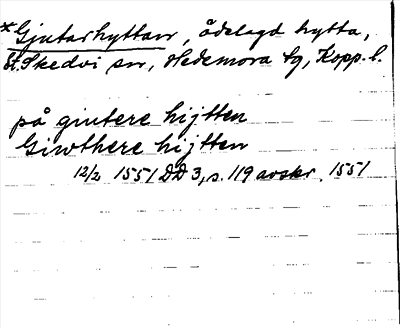 *Gjutarhyttan, ödelagd hytta,
St. Skedvi sn, Hedemora tg, Kopp. l.
på giutere hijtten
Giwthere hijtten
12/2 1551 DD 3, s. 119 avskr. 1551